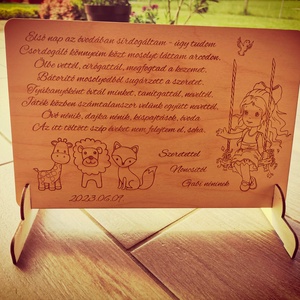 Első nap az óvodában sírdogáltam - úgy tudom
Csordogáló könnyeim közt mosolyt láttam arcodon.
Ölbe vettél, cirógattál, megfogtad a kezemet.
Bátorító mosolyodból sugárzott a szeretet.
Tyúkanyóként óvtál minket, tanítgattál, neveltél.
Játék közben számtalanszor velünk együtt nevettél.
Óvó nénik, dajka nénik, kispajtások, óvoda
Az itt töltött szép éveket nem felejtem el, soha.
Szeretettel
Nimcsitől
Gabi néninek
2023.06.09.